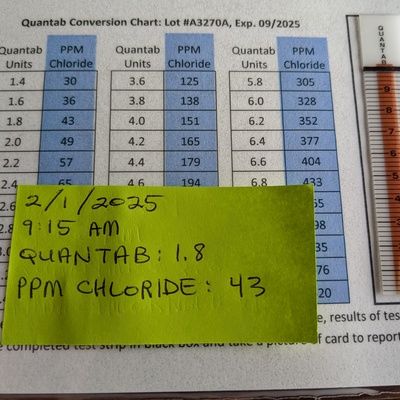 Quantab Conversion Chart: Lot #A3270A, Exp. 09/2025
Quantab Units PPM Chloride Quantab Units PPM Chloride Quantab Units PPM Chloride
1.4 30 3.6 125 5.8 305
1.6 36 3.8 138 6.0 328
1.8 43 4.0 151 6.2 352
2.0 49 4.2 165 6.4 377
2.2 57 4.4 179 6.6 404
2.4 65 4.6 194 6.8 433
2/1/2025
9:15 AM
QUANTAB: 1.8
PPM CHLORIDE: 43
QUANTAB
9
8
7
6
5
4
3
, results of test
completed test strip in black box and take a picture of card to report